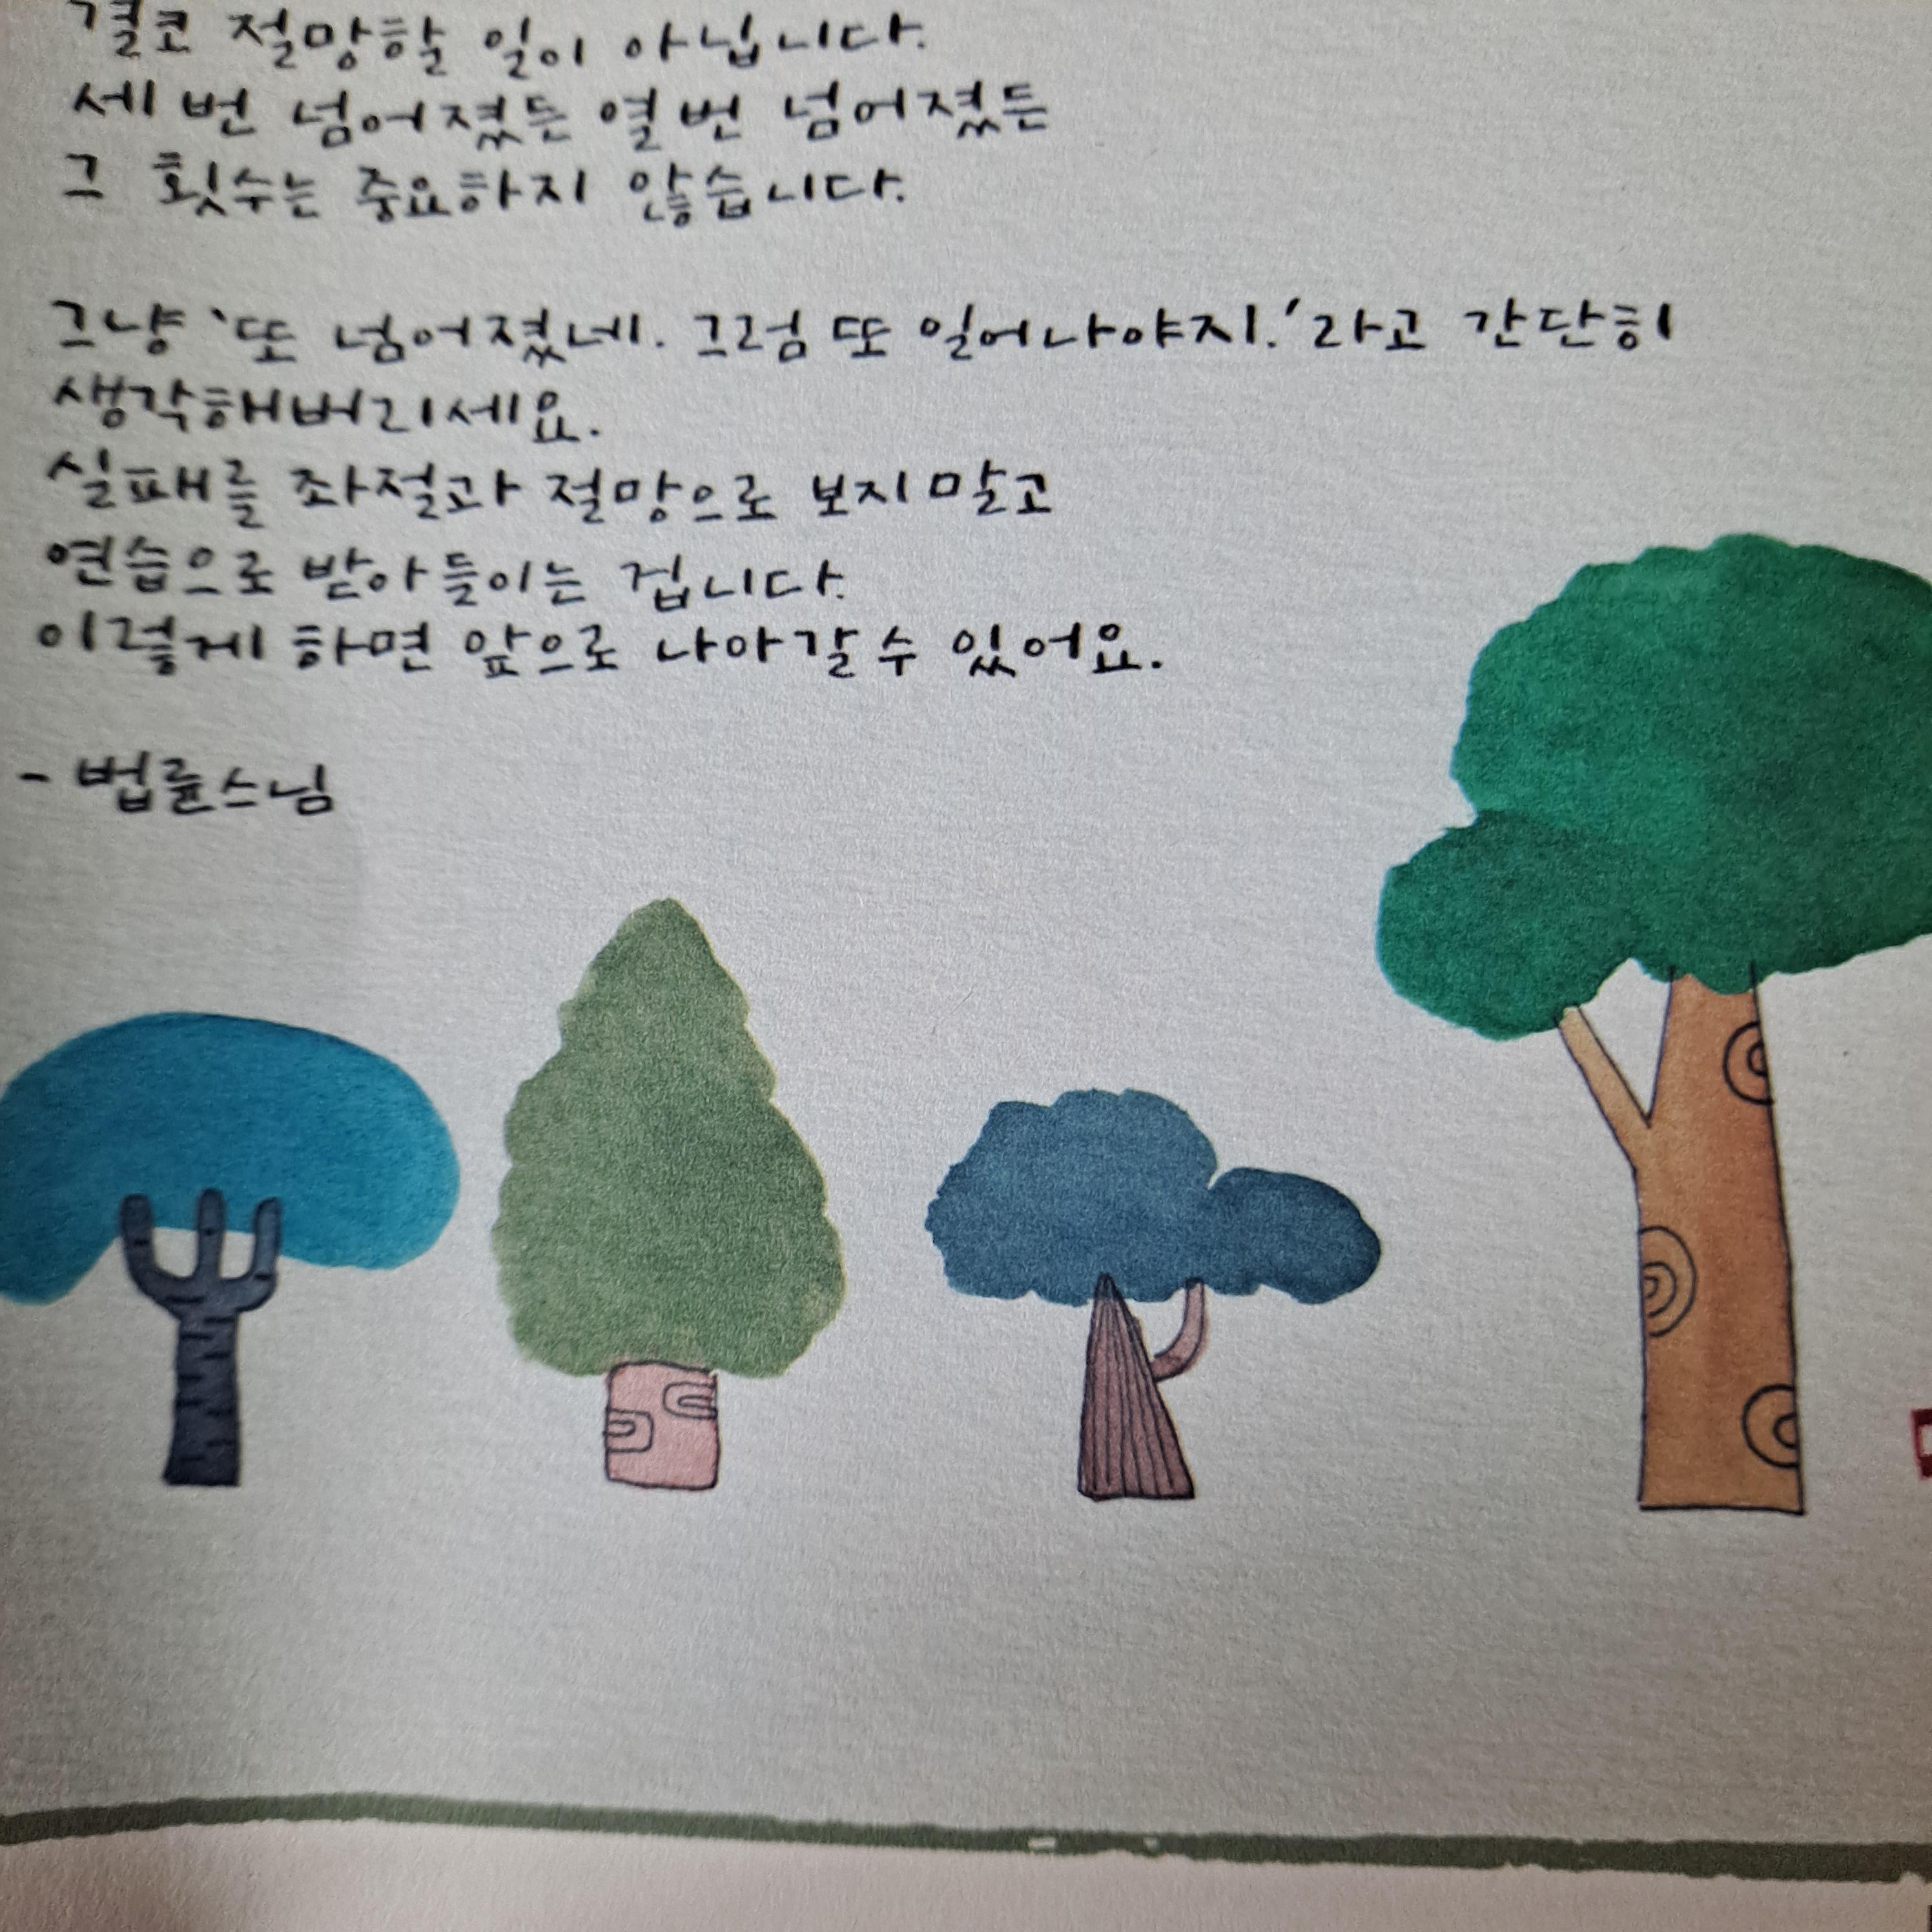 결코 절망할 일이 아닙니다.
세 번 넘어졌든 열 번 넘어졌든
그 횟수는 중요하지 않습니다.
그냥 '또 넘어졌네. 그럼 또 일어나야지.'라고 간단히
생각해버리세요.
실패를 좌절과 절망으로 보지 말고
연습으로 받아들이는 겁니다.
이렇게 하면 앞으로 나아갈 수 있어요.
- 법륜스님